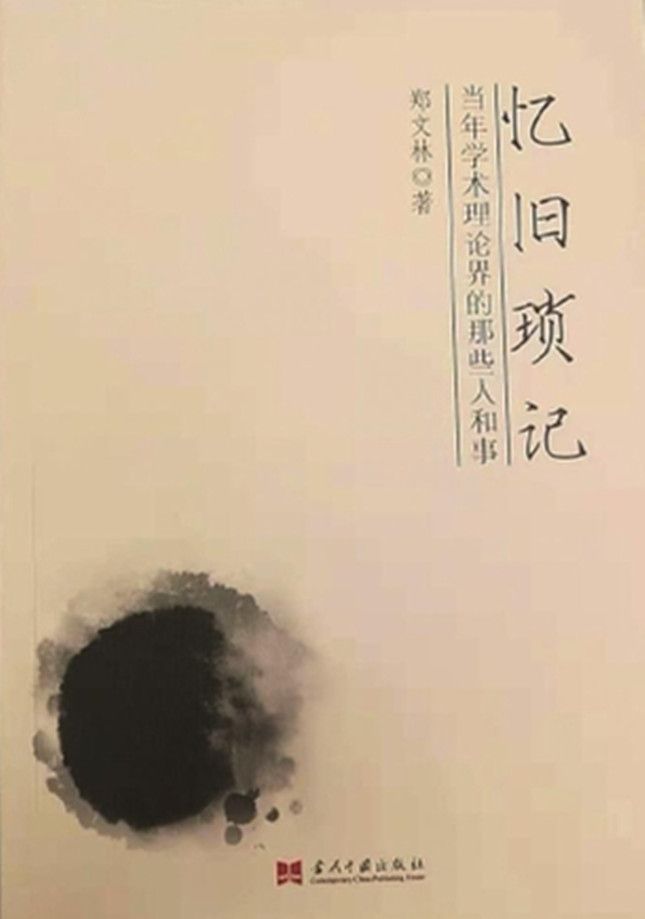 忆旧琐记
当年学术理论界的那些人和事
郑文林◎著
当代中国出版社
Contemporary China Publishing House